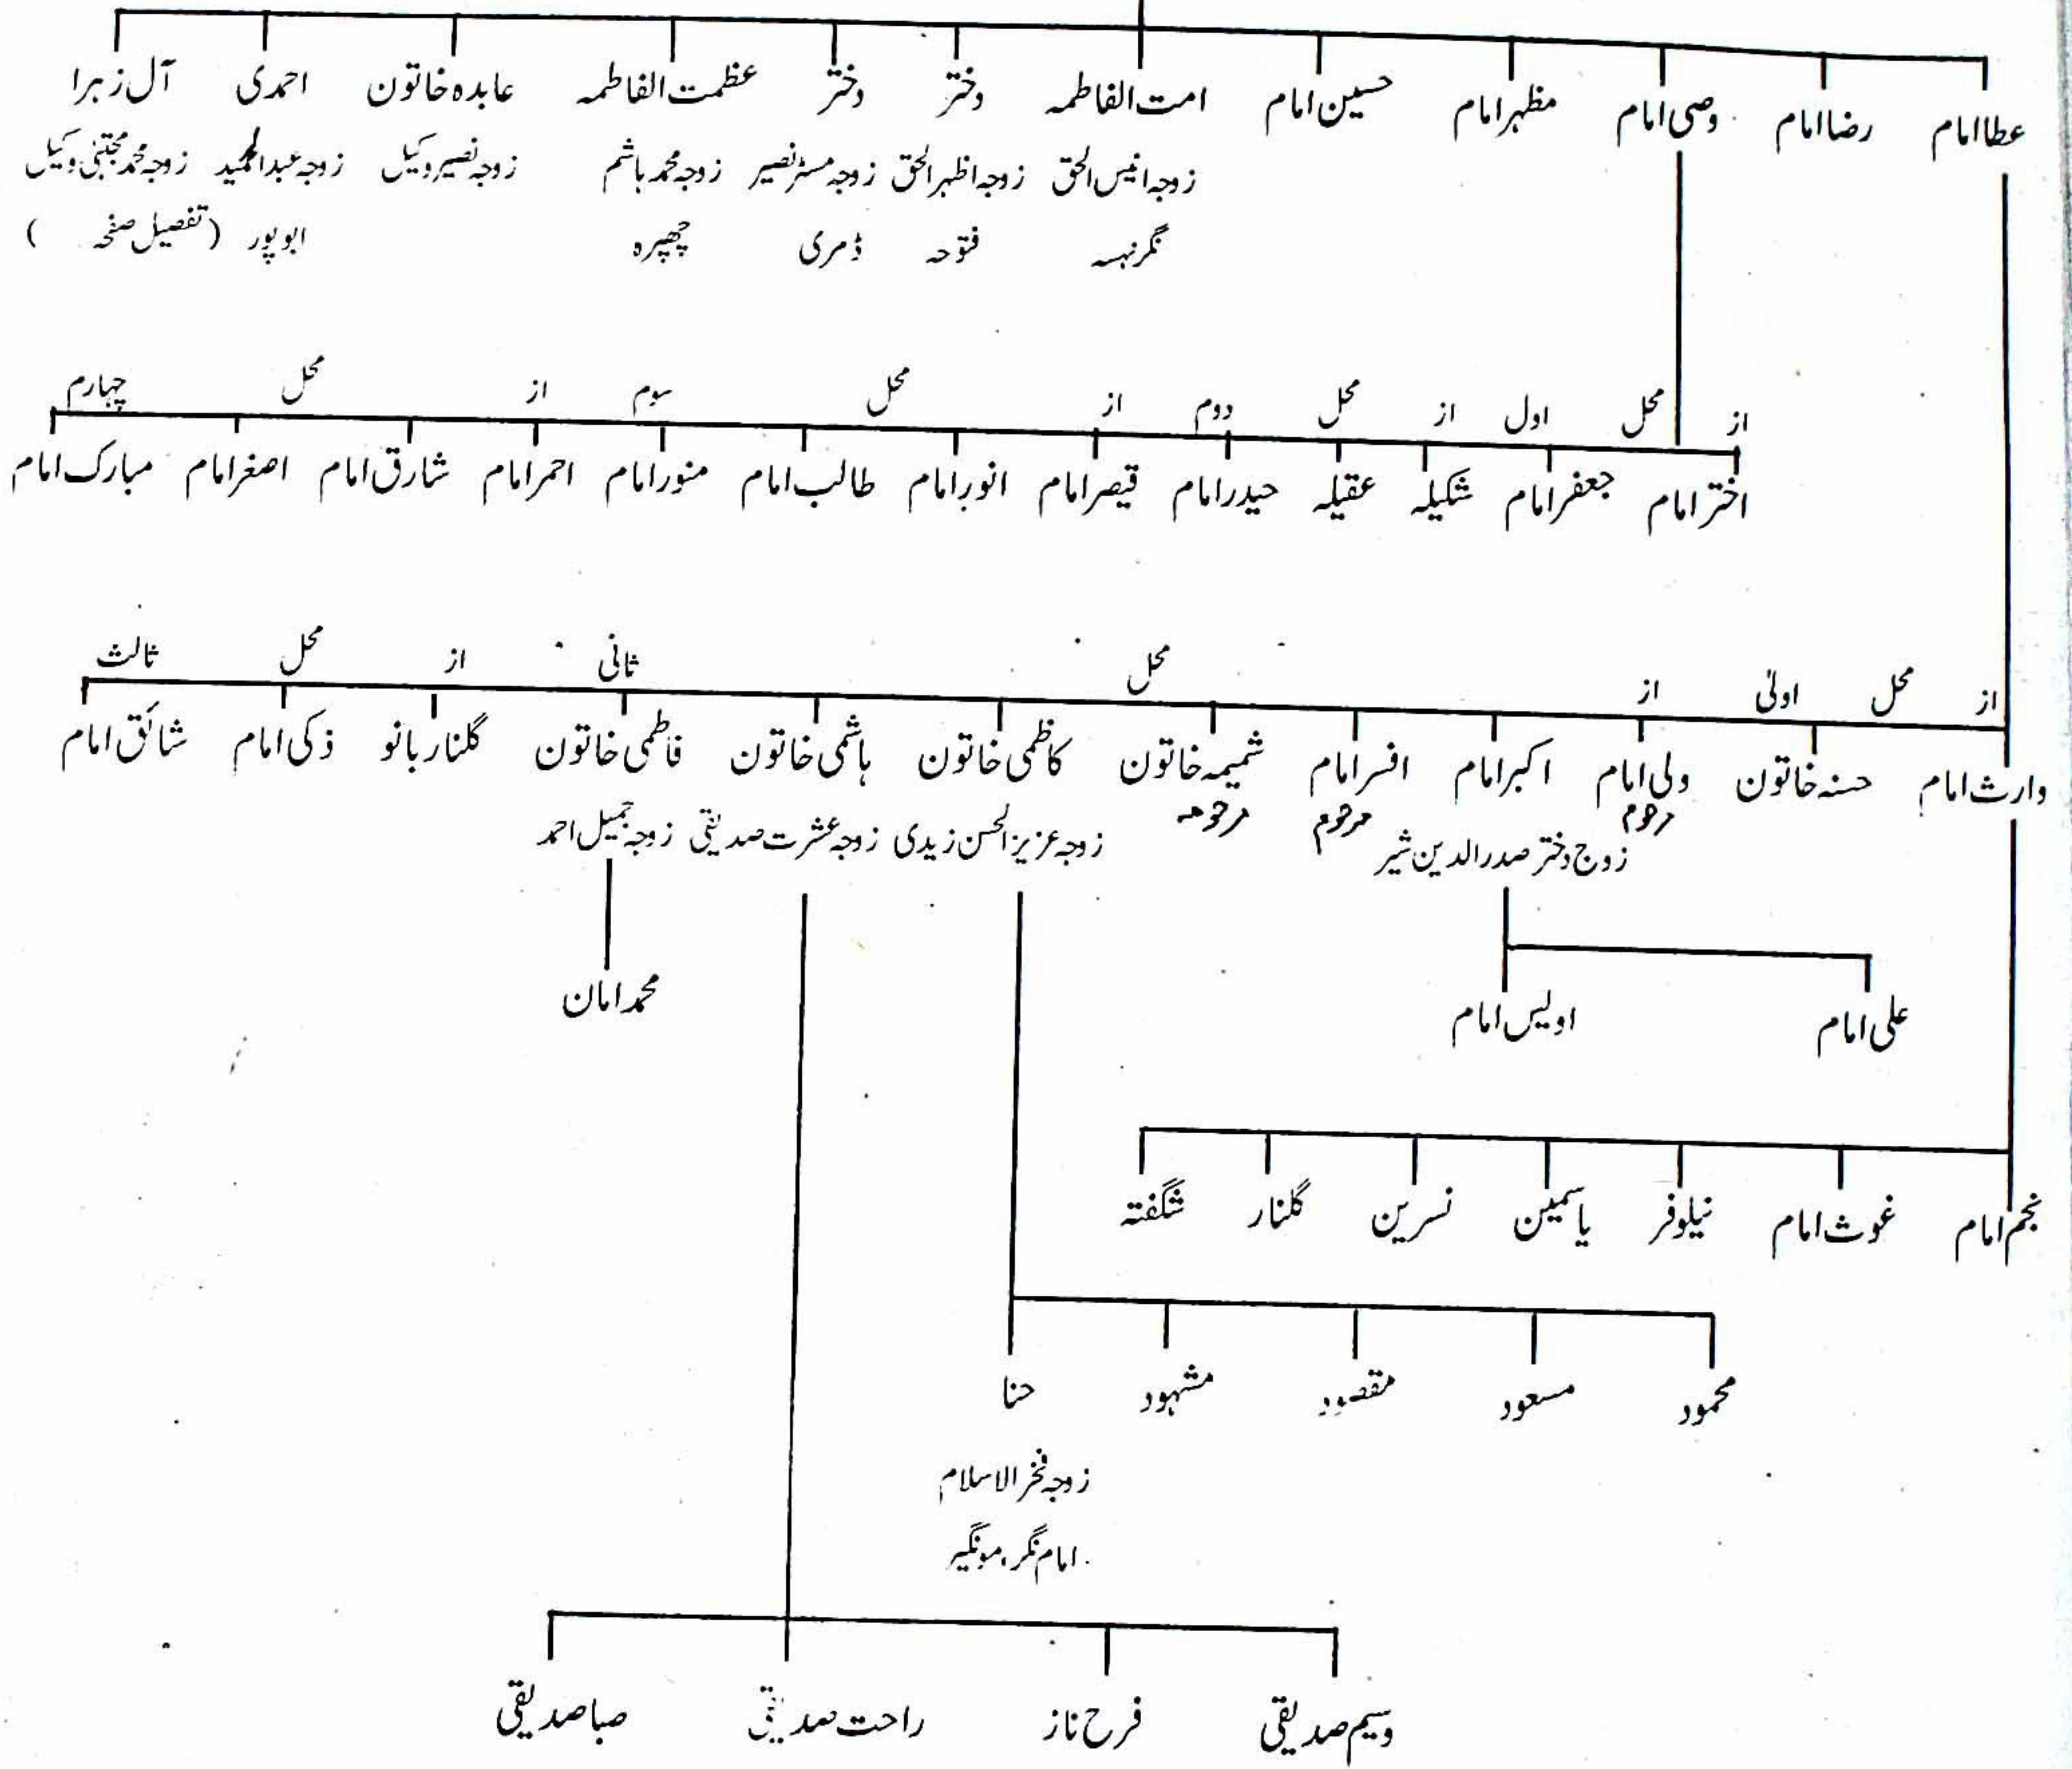 عطا امام رضا امام وصی امام مظہر امام حسین امام امت الفاطمہ دختر دختر عظمت الفاطمہ عابدہ خاتون احمدی آل زہرا
زوجہ انیس الحق زوجہ اظہر الحق زوجہ مسٹر نصیر زوجہ محمد ہاشم زوجہ نصیر وکیل زوجہ عبد الحمید زوجہ محمد مجتبیٰ وکیل
نگرنہسہ فتوحہ ڈمری چھپرہ ابوپور (تفصیل صفحہ )
از محل اول از محل دوم از محل سوم از محل چہارم
اختر امام جعفر امام شکیلہ عقیلہ حیدر امام قیصر امام انور امام طالب امام منور امام احمر امام شارق امام اصغر امام مبارک امام
از محل اولیٰ از محل ثانی از محل ثالث
وارث امام حسنہ خاتون ولی امام اکبر امام افسر امام شمیمہ خاتون کاظمی خاتون ہاشمی خاتون فاطمی خاتون گلنار بانو ذکی امام شائق امام
مرحوم مرحوم مرحومہ
زوج دختر صدر الدین شیر زوجہ عزیز الحسن زیدی زوجہ عشرت صدیقی زوجہ جمیل احمد
علی امام اویس امام محمد امان
نجم امام غوث امام نیلوفر یاسمین نسرین گلنار شگفتہ
محمود مسعود مقصود مشہود حنا
زوجہ فخر الاسلام
امام نگر، مونگیر
وسیم صدیقی فرح ناز راحت صدیقی صبا صدیقی